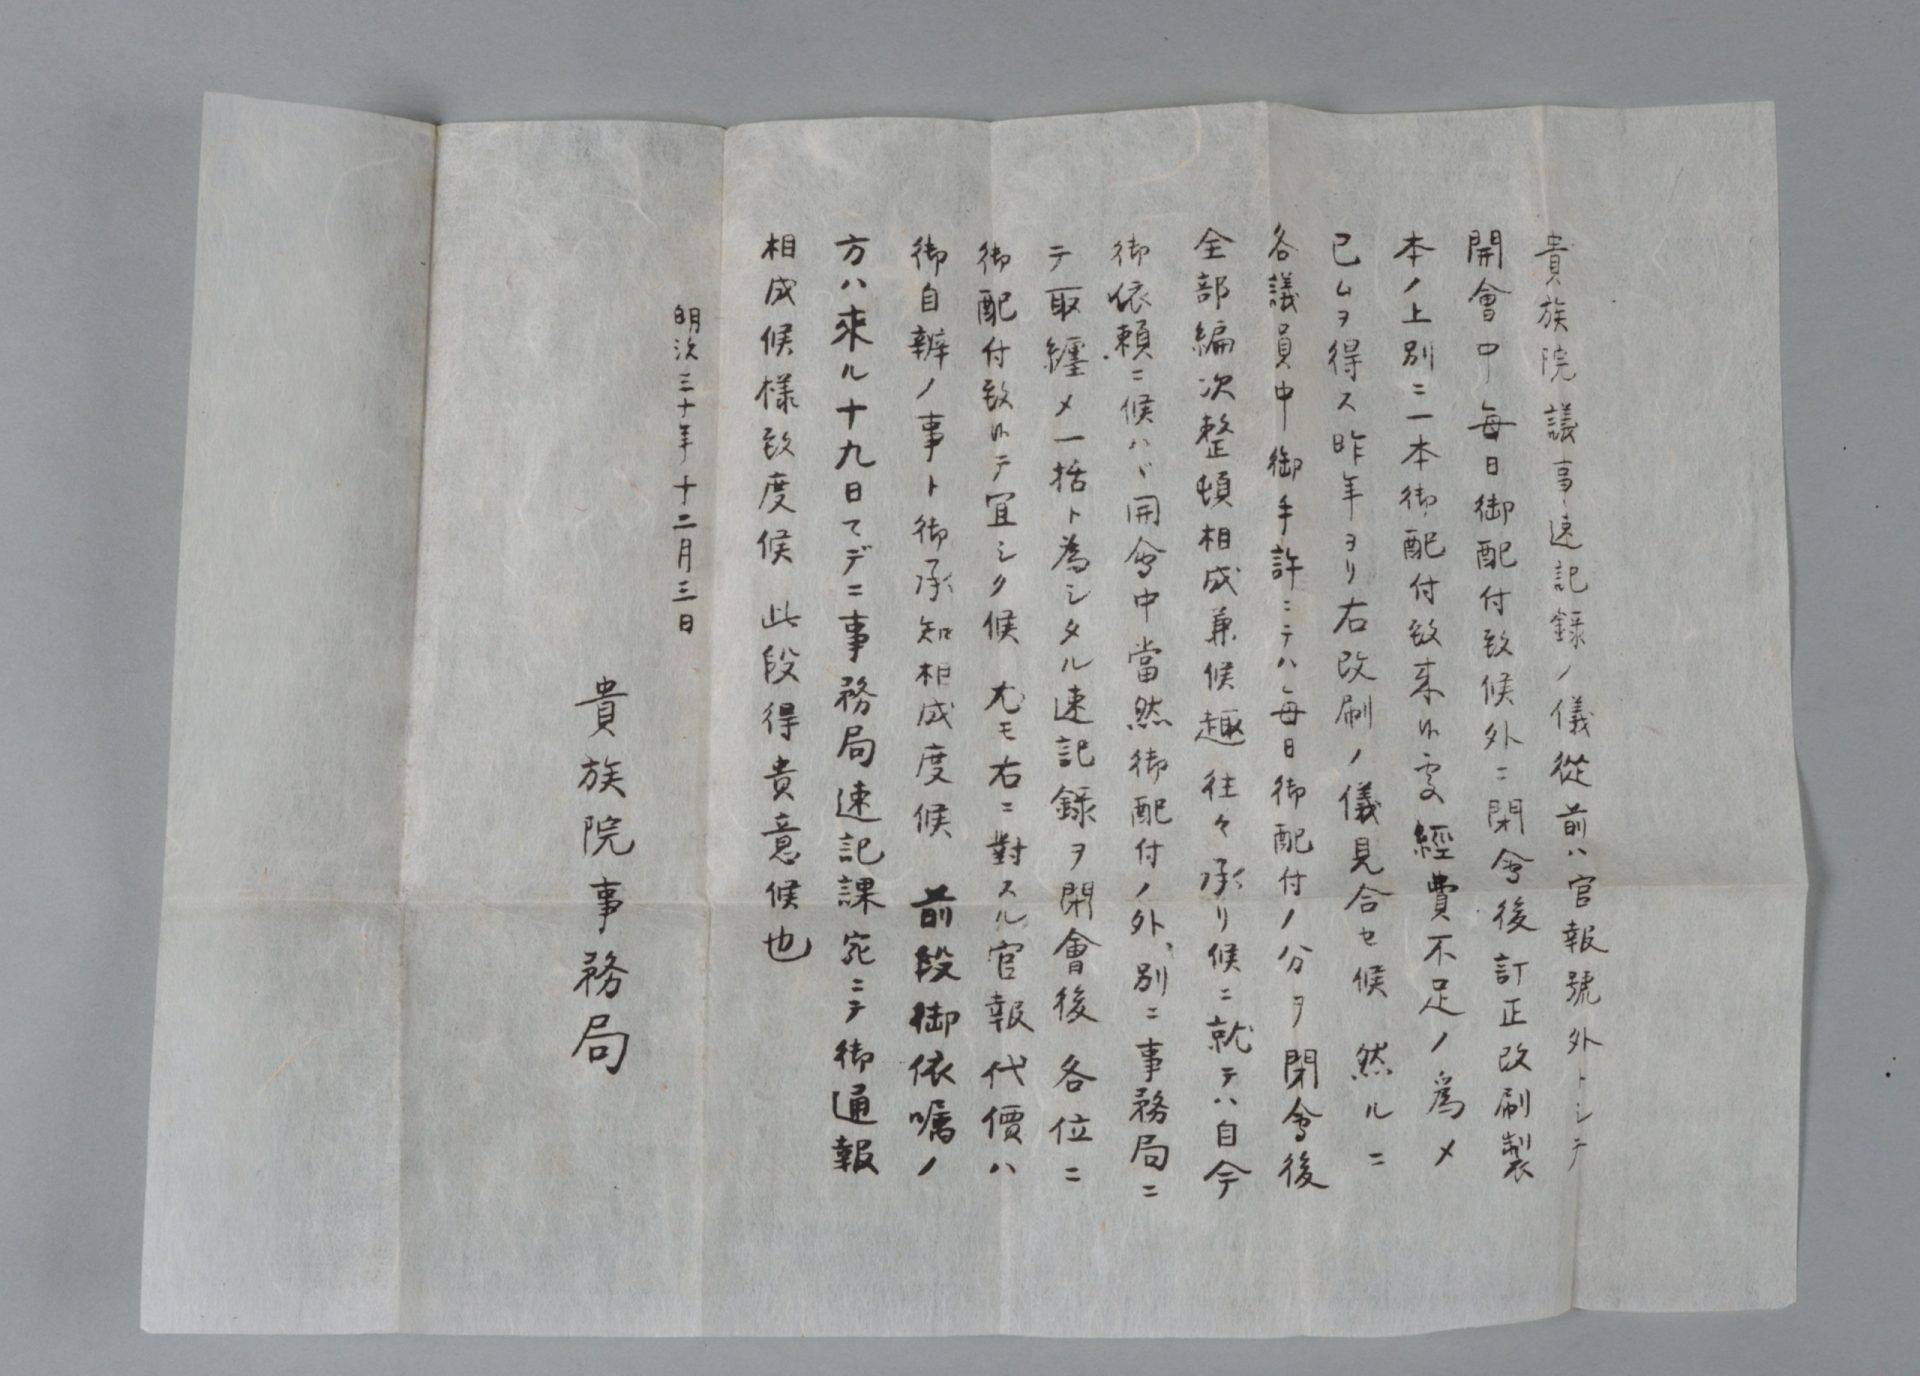 貴族院議事速記録ノ儀従前ハ官報號外トシテ
開會中毎日御配付致候外ニ閉會後訂正改刷製
本ノ上別ニ一本御配付致来候處經費不足ノ為メ
已ムヲ得ス昨年ヨリ右改刷ノ儀見合セ候然ルニ
各議員中御手許ニテハ毎日御配付ノ分ヲ閉會後
全部編次整頓相成兼候趣往々承リ候ニ就テハ自今
御依頼ニ候ハヾ開會中當然御配付ノ外、別ニ事務局ニ
テ取纏メ一括ト為シタル速記録ヲ閉會後各位ニ
御配付致候テ宜シク候尤モ右ニ對スル官報代價ハ
御自辨ノ事ト御承知相成度候前段御依嘱ノ
方ハ來ル十九日マデニ事務局速記課宛ニテ御通報
相成候様致度候此段得貴意候也
明治三十年十二月三日
貴族院事務局